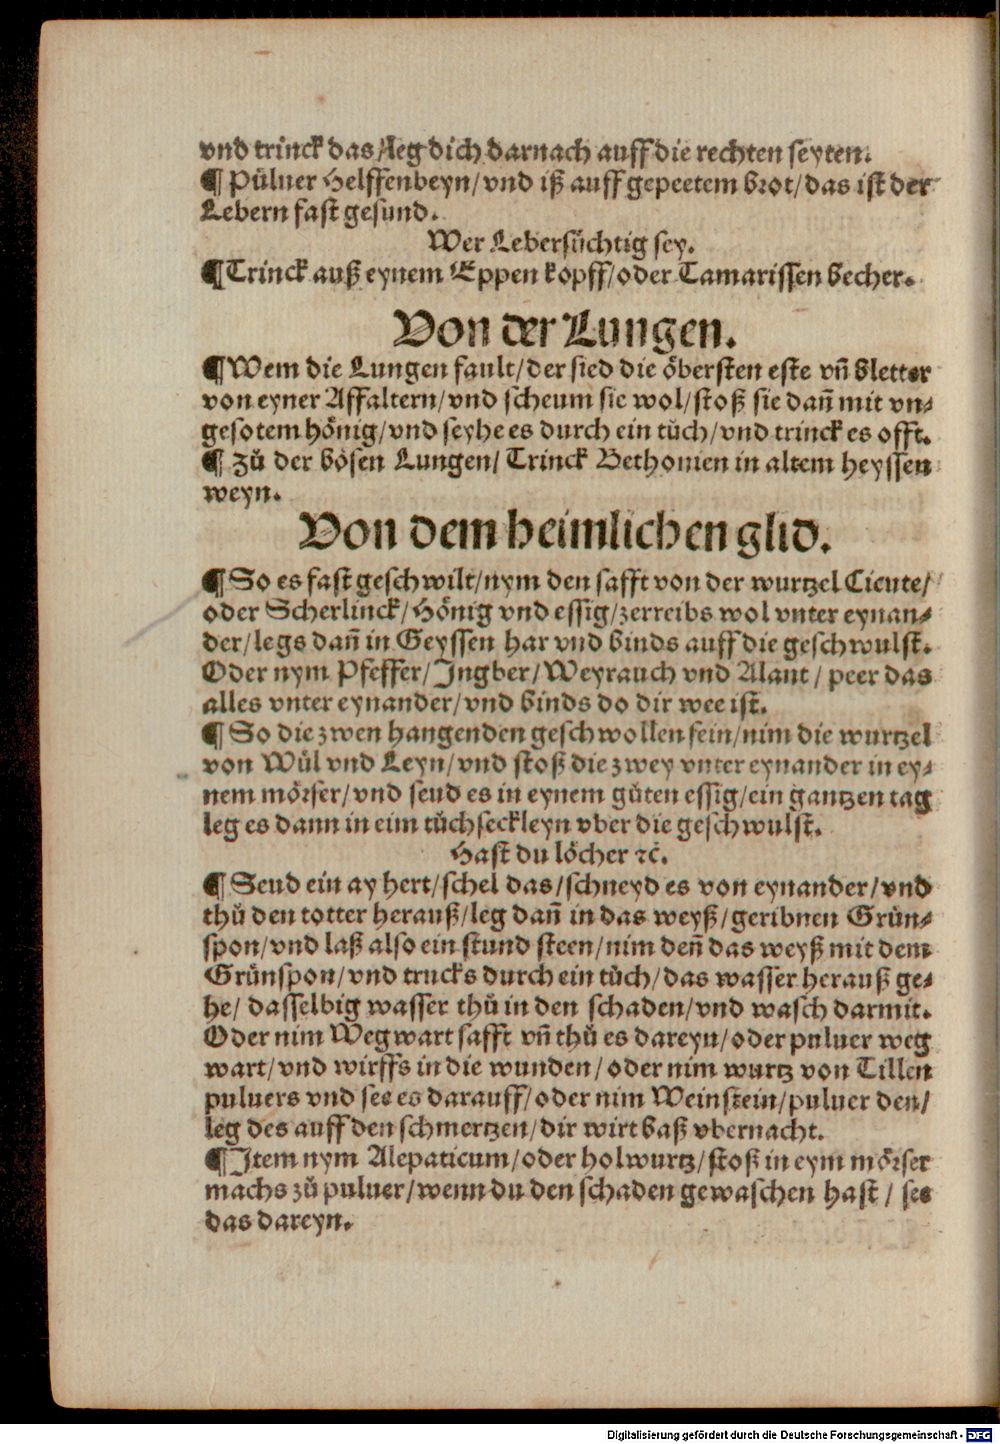 vnd trinck das/leg dich darnach auff die rechten seyten.
¶ Pülner Helffenbeyn/vnd iß auff gepeetem brot/das ist der
Lebern fast gesund.
Wer Lebersüchtig sey.
¶ Trinck auß eynem Eppen kopff/oder Tamarissen becher.
Von der Lungen.
¶ Wem die Lungen fault/der sied die öbersten este vñ bletter
von eyner Affaltern/vnd scheum sie wol/stoß sie dañ mit vn⸗
gesotem hönig/vnd seyhe es durch ein tůch/vnd trinck es offt.
¶ Zů der bösen Lungen/ Trinck Bethonien in altem heyssen
weyn.
Von dem heimlichen glid.
¶ So es fast geschwilt/nym den safft von der wurtzel Cicute/
oder Scherlinck/Hönig vnd essig/zerreibs wol vnter eynan⸗
der/legs dañ in Geyssen har vnd binds auff die geschwulst.
Oder nym Pfeffer/Ingber/Weyrauch vnd Alant/ peer das
alles vnter eynander/vnd binds do dir wee ist.
¶ So die zwen hangenden geschwollen sein/nim die wurtzel
von Wül vnd Leyn/vnd stoß die zwey vnter eynander in ey⸗
nem mörser/vnd seud es in eynem gůten essig/ein gantzen tag
leg es dann in eim tůchseckleyn vber die geschwulst.
Hast du löcher ⁊c̃.
¶ Seud ein ay hert/schel das/schneyd es von eynander/vnd
thů den totter herauß/leg dañ in das weyß/geribnen Grün⸗
spon/vnd laß also ein stund steen/nim deñ das weyß mit dem
Grünspon/vnd trucks durch ein tůch/das wasser herauß ge⸗
he/ dasselbig wasser thů in den schaden/vnd wasch darmit.
Oder nim Wegwart safft vñ thů es dareyn/oder puluer weg
wart/vnd wirffs in die wunden/oder nim wurtz von Tillen
puluers vnd see es darauff/oder nim Weinstein/puluer den/
leg des auff den schmertzen/dir wirt baß vbernacht.
¶ Item nym Alepaticum/oder holwurtz/stoß in eym mörser
machs zů puluer/wenn du den schaden gewaschen hast/ see
das dareyn.
Digitalisierung gefördert durch die Deutsche Forschungsgemeinschaft - DFG